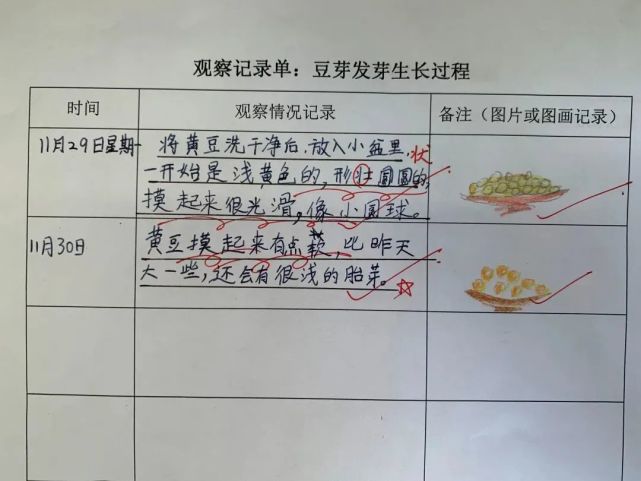 观察记录单：豆芽发芽生长过程
时间
观察情况记录
备注（图片或图画记录）
11月29日星期一
将黄豆洗干净后,放入小盆里,
状
一开始是浅黄色的,形壮圆圆的,
摸起来很光滑,像小圆球。
11月30日
黄豆摸起来有点软,比昨天
大一些,还会有很浅的胎芽。